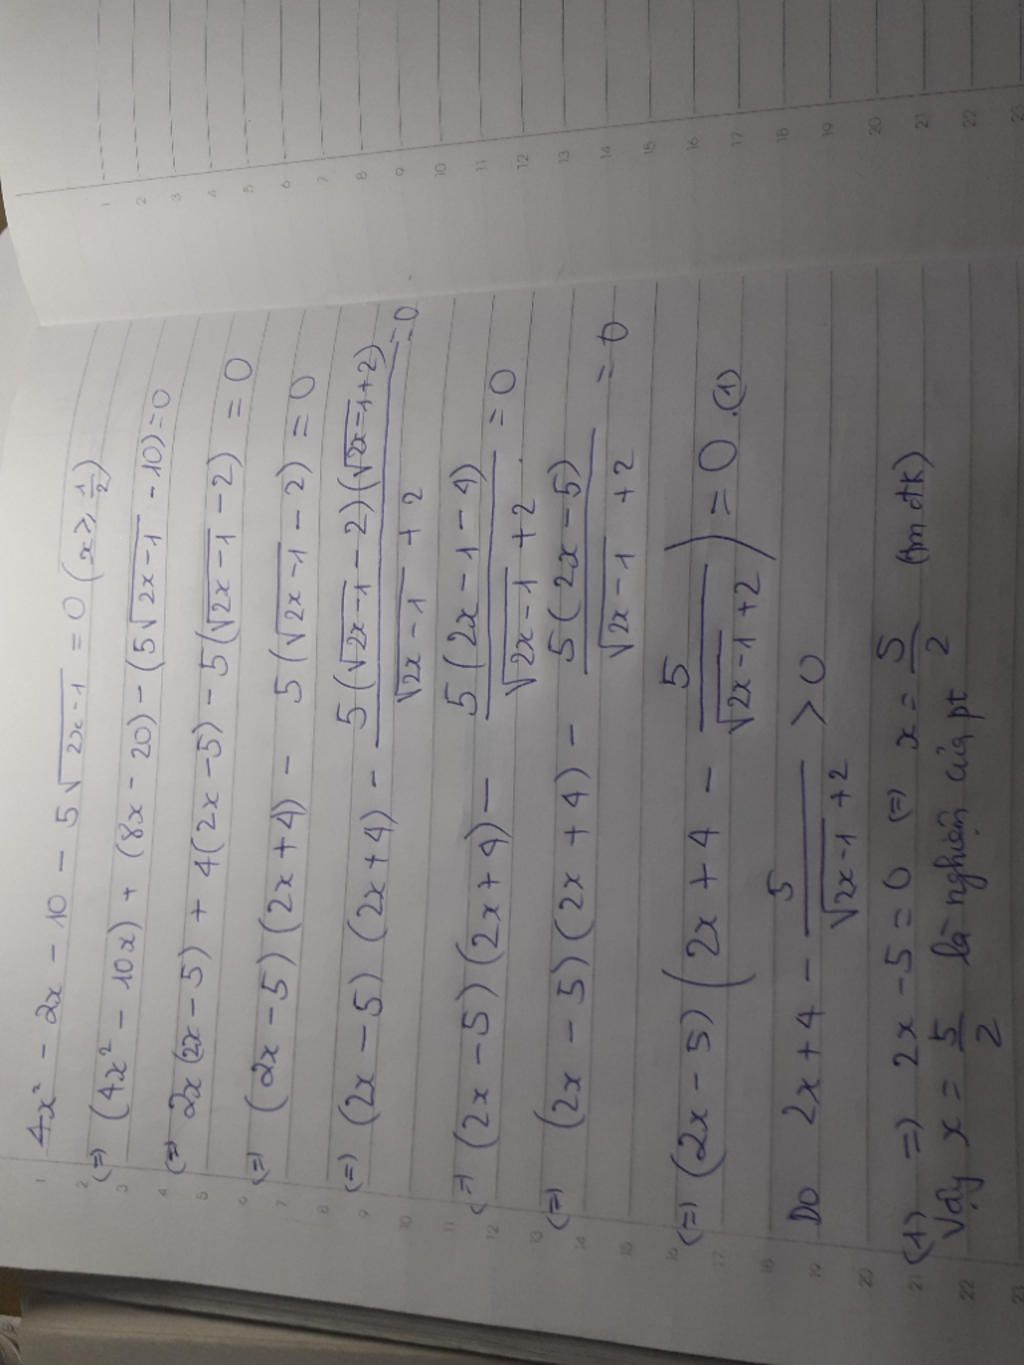 4x² - 2x - 10 - 5√(2x-1) = 0 (x ≥ 1/2)
(=) (4x² - 10x) + (8x - 20) - (5√(2x-1) - 10) = 0
(=) 2x(2x - 5) + 4(2x - 5) - 5(√(2x-1) - 2) = 0
(=) (2x - 5)(2x + 4) - 5(√(2x-1) - 2) = 0
(=) (2x - 5)(2x + 4) - 5(√(2x-1) - 2)(√(2x-1) + 2)/(√(2x-1) + 2) = 0
(=) (2x - 5)(2x + 4) - 5(2x - 1 - 4)/(√(2x-1) + 2) = 0
(=) (2x - 5)(2x + 4) - 5(2x - 5)/(√(2x-1) + 2) = 0
(=) (2x - 5)(2x + 4 - 5/(√(2x-1) + 2)) = 0 .(1)
Do 2x + 4 - 5/(√(2x-1) + 2) > 0
(1) => 2x - 5 = 0 (=) x = 5/2 (tm đtk)
Vậy x = 5/2 là nghiệm của pt
1
2
3
4
5
6
7
8
9
10
11
12
13
14
15
16
17
18
19
20
21
22
23
1
2
3
4
5
6
7
8
9
10
11
12
13
14
15
16
17
18
19
20
21
22
23